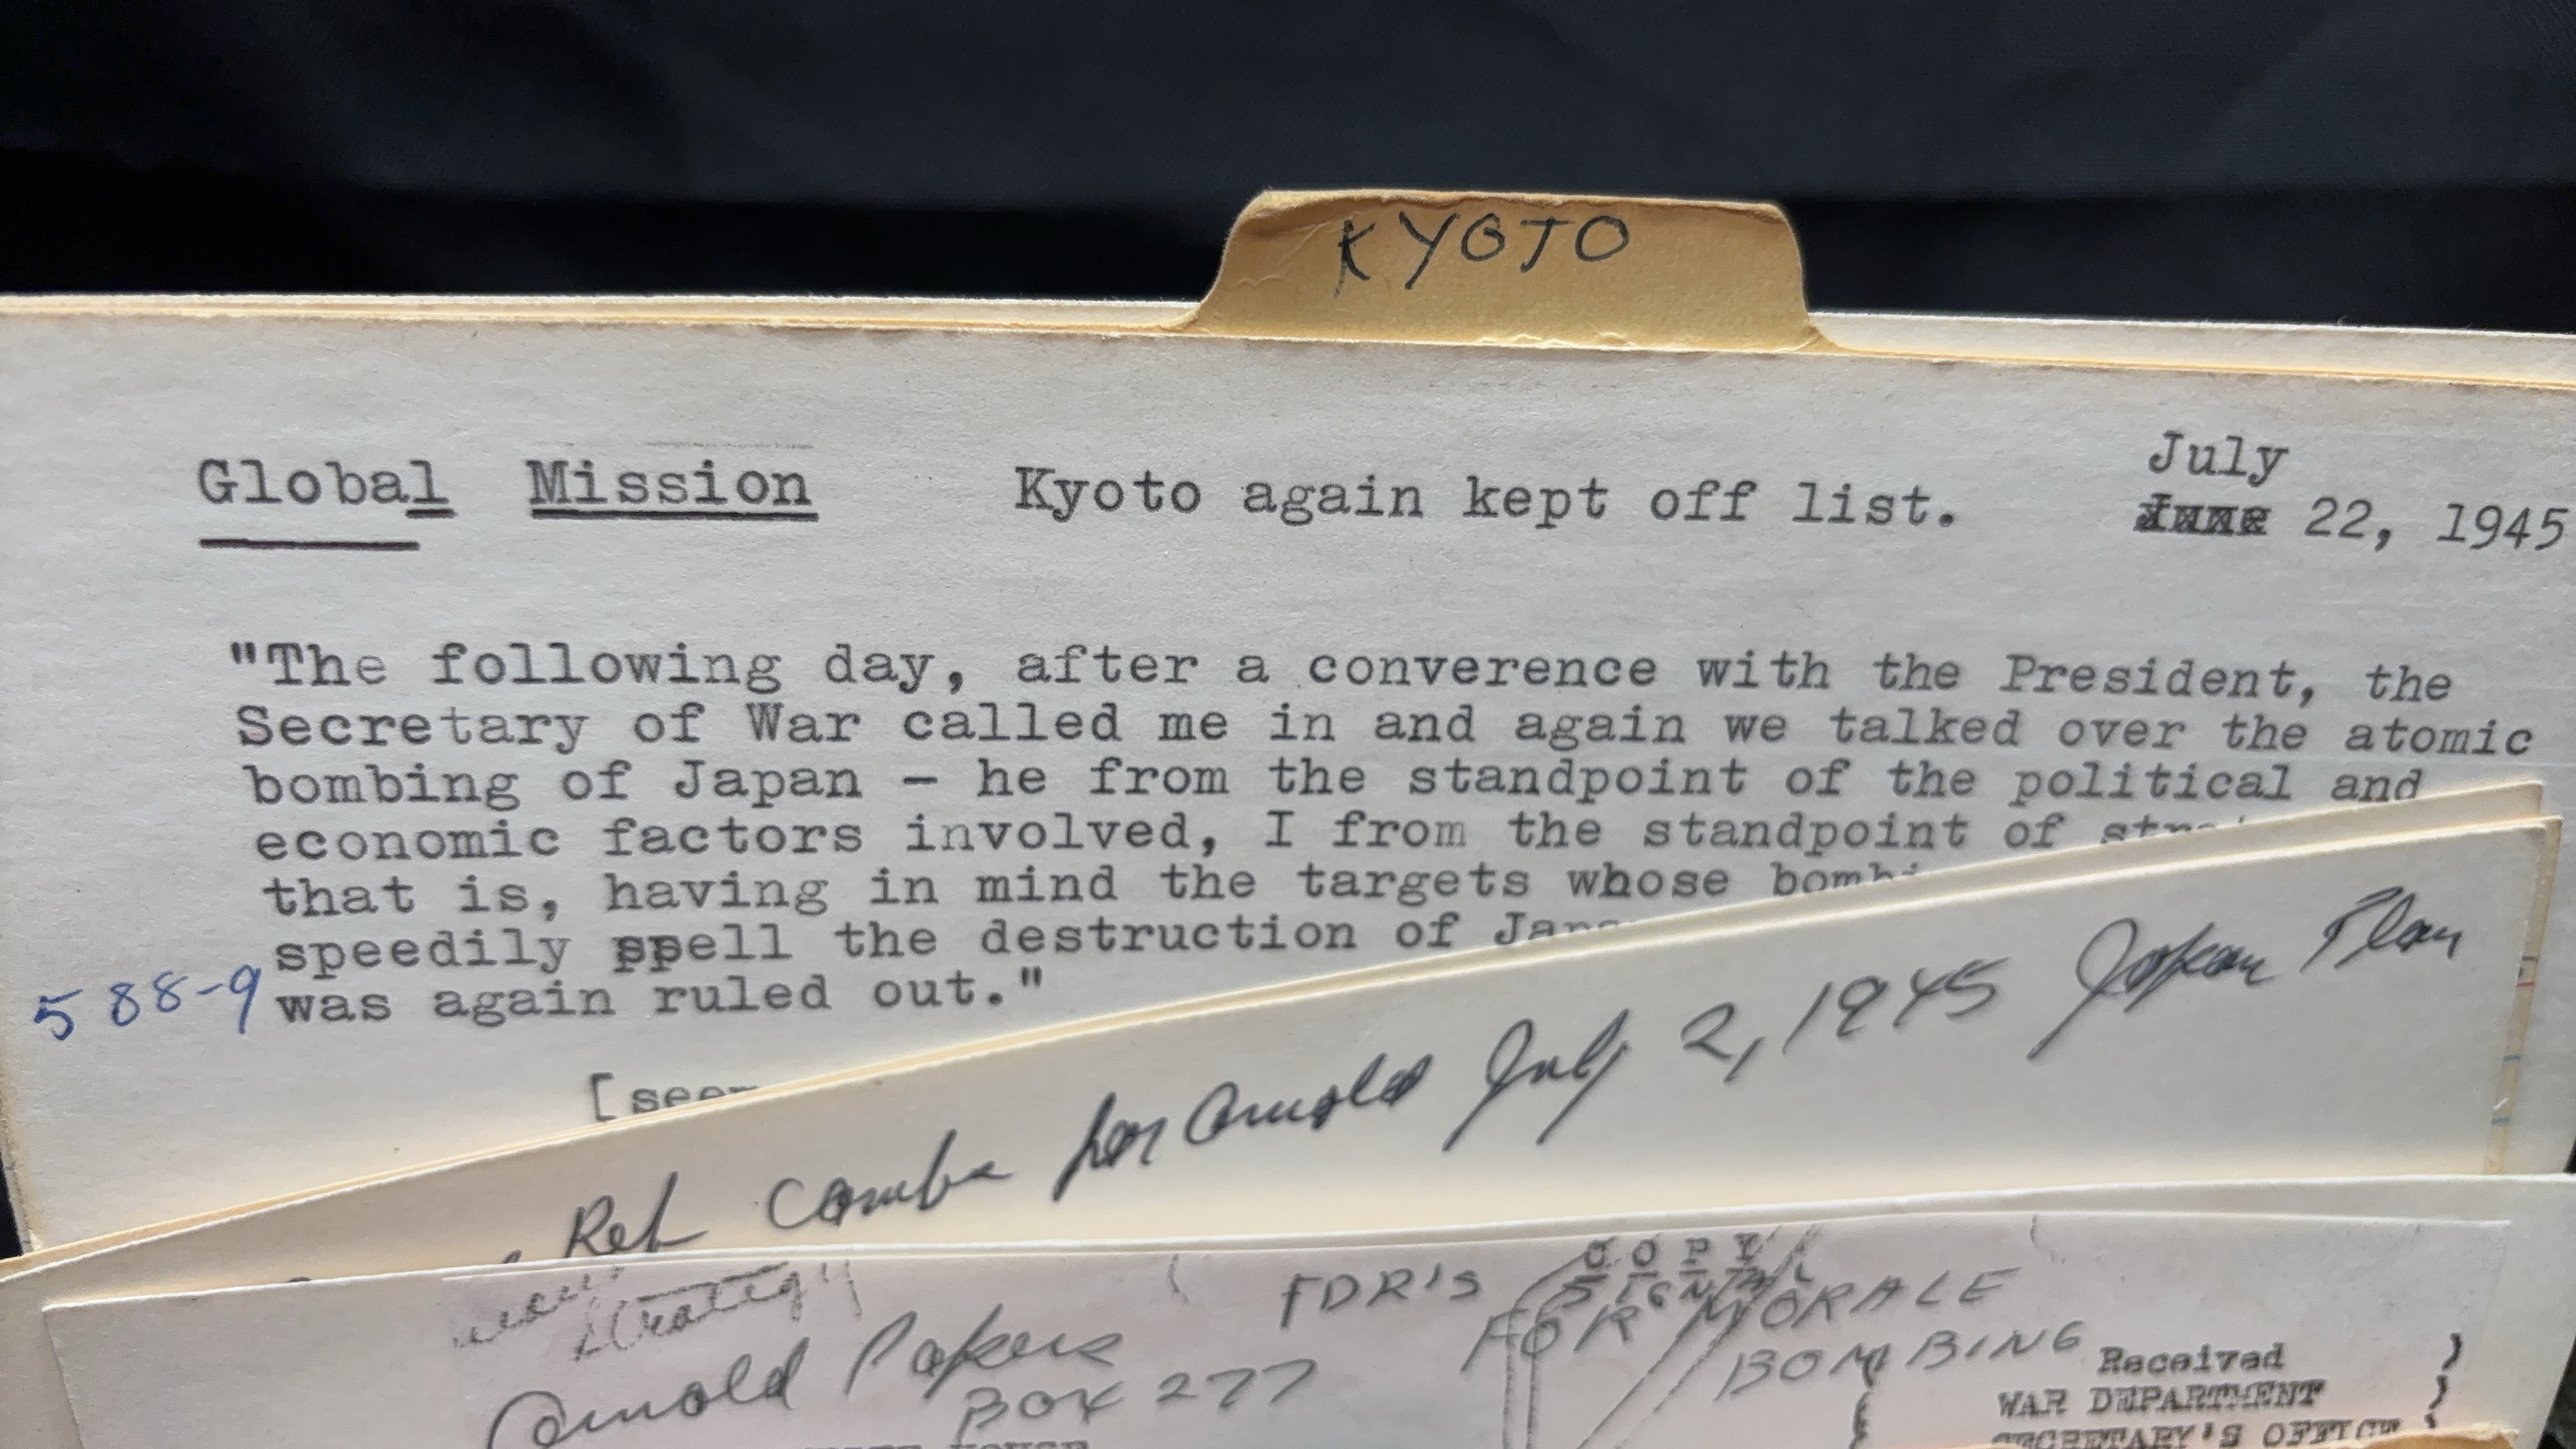 KYOTO
Global Mission Kyoto again kept off list. July
June 22, 1945
"The following day, after a converence with the President, the
Secretary of War called me in and again we talked over the atomic
bombing of Japan - he from the standpoint of the political and
economic factors involved, I from the standpoint of
that is, having in mind the targets whose
speedily spell the destruction of
588-9 was again ruled out."
Arnold July 2, 1945 Japan Plan
strategy
FDR'S
COPY
SIGNAL
FOR MORALE
BOMBING
Arnold Papers
BOX 277
Received
WAR DEPARTMENT
SECRETARY'S OFFICE